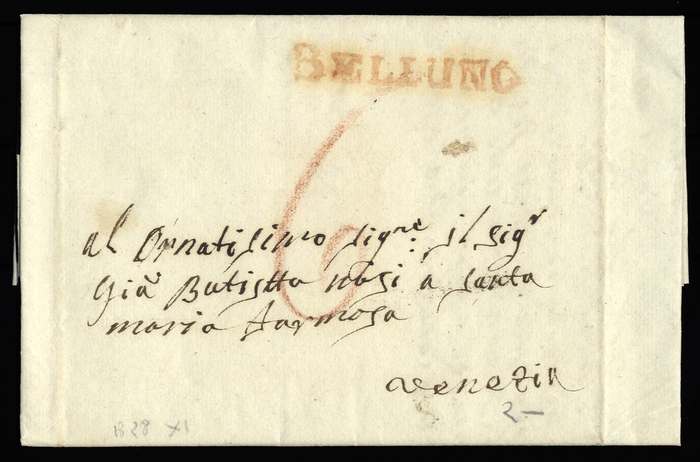 BELLUNO
6
al Ornatisimo Sigre: il Sigr
Giā Batistta nasi à santa
maria farmosa
Venezia
2 —
1828 XI